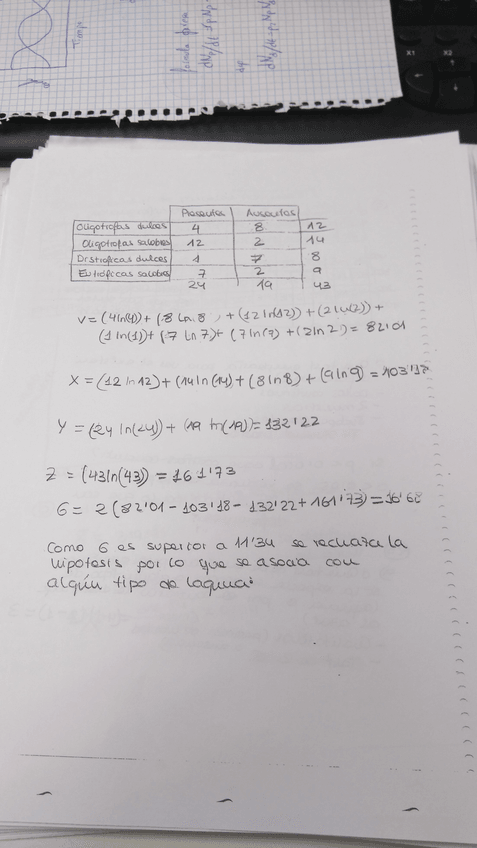 Tiempo
dNp/dt
X1 X2
Presentes Ausentes
Oligotrofas dulces 4 8 12
Oligotrofas salobres 12 2 14
Distroficas dulces 1 7 8
Eutroficas salobres 7 2 9
24 19 43
V = (4ln(4)) + (8 ln 8) + (12 ln(12)) + (2 ln(2)) +
(1 ln(1)) + (7 ln 7) + (7 ln(7) + (2ln2) = 82'01
X = (12 ln 12) + (14 ln(14) + (8 ln 8) + (9 ln 9) = 103'18
Y = (24 ln(24)) + (19 ln(19)) = 132'22
Z = (43 ln(43)) = 161'73
G = 2 (82'01 - 103'18 - 132'22 + 161'73) = 16'68
Como G es superior a 11'34 se rechaza la
hipotesis por lo que se asocia con
algún tipo de laguna.